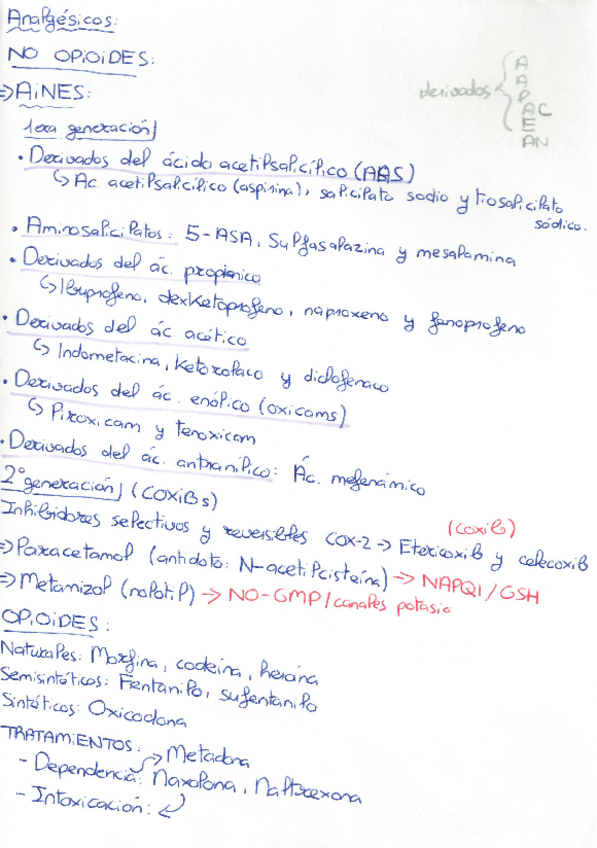 Analgésicos:
NO OPIOIDES:
derivados { A A P AC E AN
⇒ AINES:
1era generación
• Derivados del ácido acetilsalicílico (AAS)
↳ Ac. acetilsalicílico (aspirina), salicilato sodio y tiosalicilato sódico.
• Aminosalicilatos: 5-ASA, Sulfasalazina y mesalamina
• Derivados del ác. propiónico
↳ Ibuprofeno, dexketoprofeno, naproxeno y fenoprofeno
• Derivados del ác acético
↳ Indometacina, ketorolaco y diclofenaco
• Derivados del ác. enólico (oxicams)
↳ Piroxicam y tenoxicam
• Derivados del ác. antranílico: Ác. mefenámico
2º generación (COXIBs)
(coxib)
Inhibidores selectivos y reversibles COX-2 → Etericoxib y celecoxib
⇒ Paracetamol (antídoto: N-acetilcisteína) → NAPQI/GSH
⇒ Metamizol (nolotil) → NO-GMP/canales potasio
OPIOIDES:
Naturales: Morfina, codeína, heroína
Semisintéticos: Fentanilo, sufentanilo
Sintéticos: Oxicodona
TRATAMIENTOS:
→ Metadona
- Dependencia: Naxolona, Naltrexona
- Intoxicación: ↲